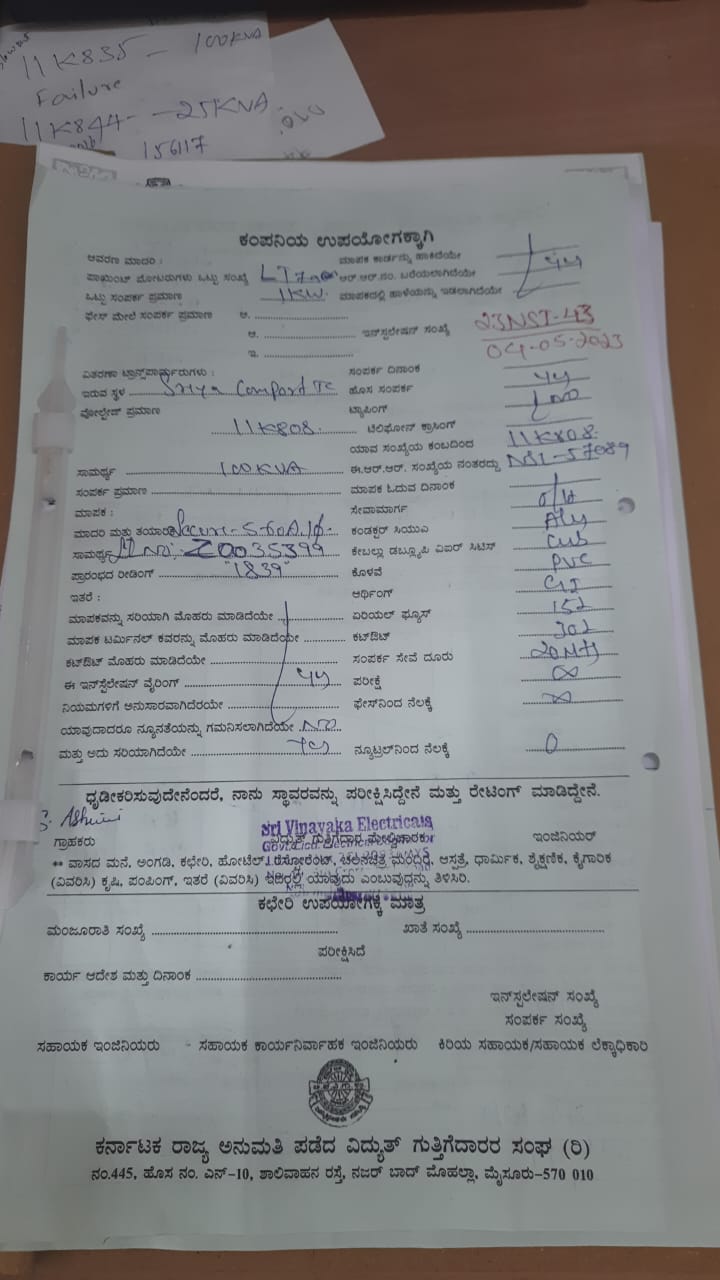 11K835 - 100KVA
Failure
11K844 - 25KVA
156117
ಕಂಪನಿಯ ಉಪಯೋಗಕ್ಕಾಗಿ
ಆವರಣ ಮಾದರಿ : ಮಾಪಕ ಕಾರ್ಡನ್ನು ಹಾಕಿದೆಯೇ
ಪಾಯಿಂಟ್ ಮೋಟರುಗಳು ಒಟ್ಟು ಸಂಖ್ಯೆ ಆರ್.ಆರ್.ನಂ. ಬರೆಯಲಾಗಿದೆಯೇ
ಒಟ್ಟು ಸಂಪರ್ಕ ಪ್ರಮಾಣ 1KW ಮಾಪಕದಲ್ಲಿ ಹಾಳೆಯನ್ನು ಇಡಲಾಗಿದೆಯೇ
ಫೇಸ್ ಮೇಲೆ ಸಂಪರ್ಕ ಪ್ರಮಾಣ ಅ.
ಆ. ಇನ್‌ಸ್ಟಲೇಷನ್ ಸಂಖ್ಯೆ 23NST-43
ಇ. 04-05-2023
ವಿತರಣಾ ಟ್ರಾನ್ಸ್‌ಫಾರ್ಮರುಗಳು : ಸಂಪರ್ಕ ದಿನಾಂಕ
ಇರುವ ಸ್ಥಳ Sriya Comfort TC ಹೊಸ ಸಂಪರ್ಕ
ವೋಲ್ಟೇಜ್ ಪ್ರಮಾಣ ಟ್ಯಾಪಿಂಗ್ NO
11K808 ಟೆಲಿಫೋನ್ ಕ್ರಾಸಿಂಗ್
ಯಾವ ಸಂಖ್ಯೆಯ ಕಂಬದಿಂದ 11K808
ಸಾಮರ್ಥ್ಯ 100KVA ಈ.ಆರ್.ಆರ್. ಸಂಖ್ಯೆಯ ನಂತರದ್ದು NSL-57089
ಸಂಪರ್ಕ ಪ್ರಮಾಣ ಮಾಪಕ ಓದುವ ದಿನಾಂಕ
ಮಾಪಕ : ಸೇವಾಮಾರ್ಗ O/H
ಮಾದರಿ ಮತ್ತು ತಯಾರಿ Secure-5-60A 1ø ಕಂಡಕ್ಟರ್ ಸಿಯುಎ Aly
ಸಾಮರ್ಥ್ಯ Z0035399 ಕೇಬಲ್ಲು ಡಬ್ಲ್ಯೂಪಿ ಎಐರ್ ಸಿಟಿಸ್ Cub
ಪ್ರಾರಂಭದ ರೀಡಿಂಗ್ "1839" ಕೊಳವೆ PVC
ಇತರೆ : ಅರ್ಥಿಂಗ್ GI
ಮಾಪಕವನ್ನು ಸರಿಯಾಗಿ ಮೊಹರು ಮಾಡಿದೆಯೇ ಏರಿಯಲ್ ಫ್ಯೂಸ್
ಮಾಪಕ ಟರ್ಮಿನಲ್ ಕವರನ್ನು ಮೊಹರು ಮಾಡಿದೆಯೇ ಕಟ್‌ಔಟ್
ಕಟ್‌ಔಟ್ ಮೊಹರು ಮಾಡಿದೆಯೇ ಸಂಪರ್ಕ ಸೇವೆ ದೂರು 20Mts
ಈ ಇನ್‌ಸ್ಟಲೇಷನ್ ವೈರಿಂಗ್ ಪರೀಕ್ಷೆ ∞
ನಿಯಮಗಳಿಗೆ ಅನುಸಾರವಾಗಿದೆರಯೇ ಫೇಸ್‌ನಿಂದ ನೆಲಕ್ಕೆ ∞
ಯಾವುದಾದರೂ ನ್ಯೂನತೆಯನ್ನು ಗಮನಿಸಲಾಗಿದೆಯೇ NO
ಮತ್ತು ಅದು ಸರಿಯಾಗಿದೆಯೇ Yes ನ್ಯೂಟ್ರಲ್‌ನಿಂದ ನೆಲಕ್ಕೆ 0
ಧೃಡೀಕರಿಸುವುದೇನೆಂದರೆ, ನಾನು ಸ್ಥಾವರವನ್ನು ಪರೀಕ್ಷಿಸಿದ್ದೇನೆ ಮತ್ತು ರೇಟಿಂಗ್ ಮಾಡಿದ್ದೇನೆ.
Sri Vinayaka Electricals
ಗ್ರಾಹಕರು ವಿದ್ಯುತ್ ಗುತ್ತಿಗೆದಾರ ಮೇಲ್ವಿಚಾರಕರು ಇಂಜಿನಿಯರ್
** ವಾಸದ ಮನೆ, ಅಂಗಡಿ, ಕಛೇರಿ, ಹೋಟೆಲ್, ರೆಸ್ಟೋರೆಂಟ್, ಚಲನಚಿತ್ರ ಮಂದಿರ, ಆಸ್ಪತ್ರೆ, ಧಾರ್ಮಿಕ, ಶೈಕ್ಷಣಿಕ, ಕೈಗಾರಿಕ
(ವಿವರಿಸಿ) ಕೃಷಿ, ಪಂಪಿಂಗ್, ಇತರೆ (ವಿವರಿಸಿ) ಇದರಲ್ಲಿ ಯಾವುದು ಎಂಬುವುದನ್ನು ತಿಳಿಸಿರಿ.
ಕಛೇರಿ ಉಪಯೋಗಕ್ಕೆ ಮಾತ್ರ
ಮಂಜೂರಾತಿ ಸಂಖ್ಯೆ ಖಾತೆ ಸಂಖ್ಯೆ
ಪರೀಕ್ಷಿಸಿದೆ
ಕಾರ್ಯ ಆದೇಶ ಮತ್ತು ದಿನಾಂಕ
ಇನ್‌ಸ್ಟಲೇಷನ್ ಸಂಖ್ಯೆ
ಸಂಪರ್ಕ ಸಂಖ್ಯೆ
ಸಹಾಯಕ ಇಂಜಿನಿಯರು - ಸಹಾಯಕ ಕಾರ್ಯನಿರ್ವಾಹಕ ಇಂಜಿನಿಯರು ಕಿರಿಯ ಸಹಾಯಕ/ಸಹಾಯಕ ಲೆಕ್ಕಾಧಿಕಾರಿ
ಕರ್ನಾಟಕ ರಾಜ್ಯ ಅನುಮತಿ ಪಡೆದ ವಿದ್ಯುತ್ ಗುತ್ತಿಗೆದಾರರ ಸಂಘ (ರಿ)
ನಂ.445, ಹೊಸ ನಂ. ಎನ್-10, ಶಾಲಿವಾಹನ ರಸ್ತೆ, ನಜರ್ ಬಾದ್ ಮೊಹಲ್ಲಾ, ಮೈಸೂರು-570 010